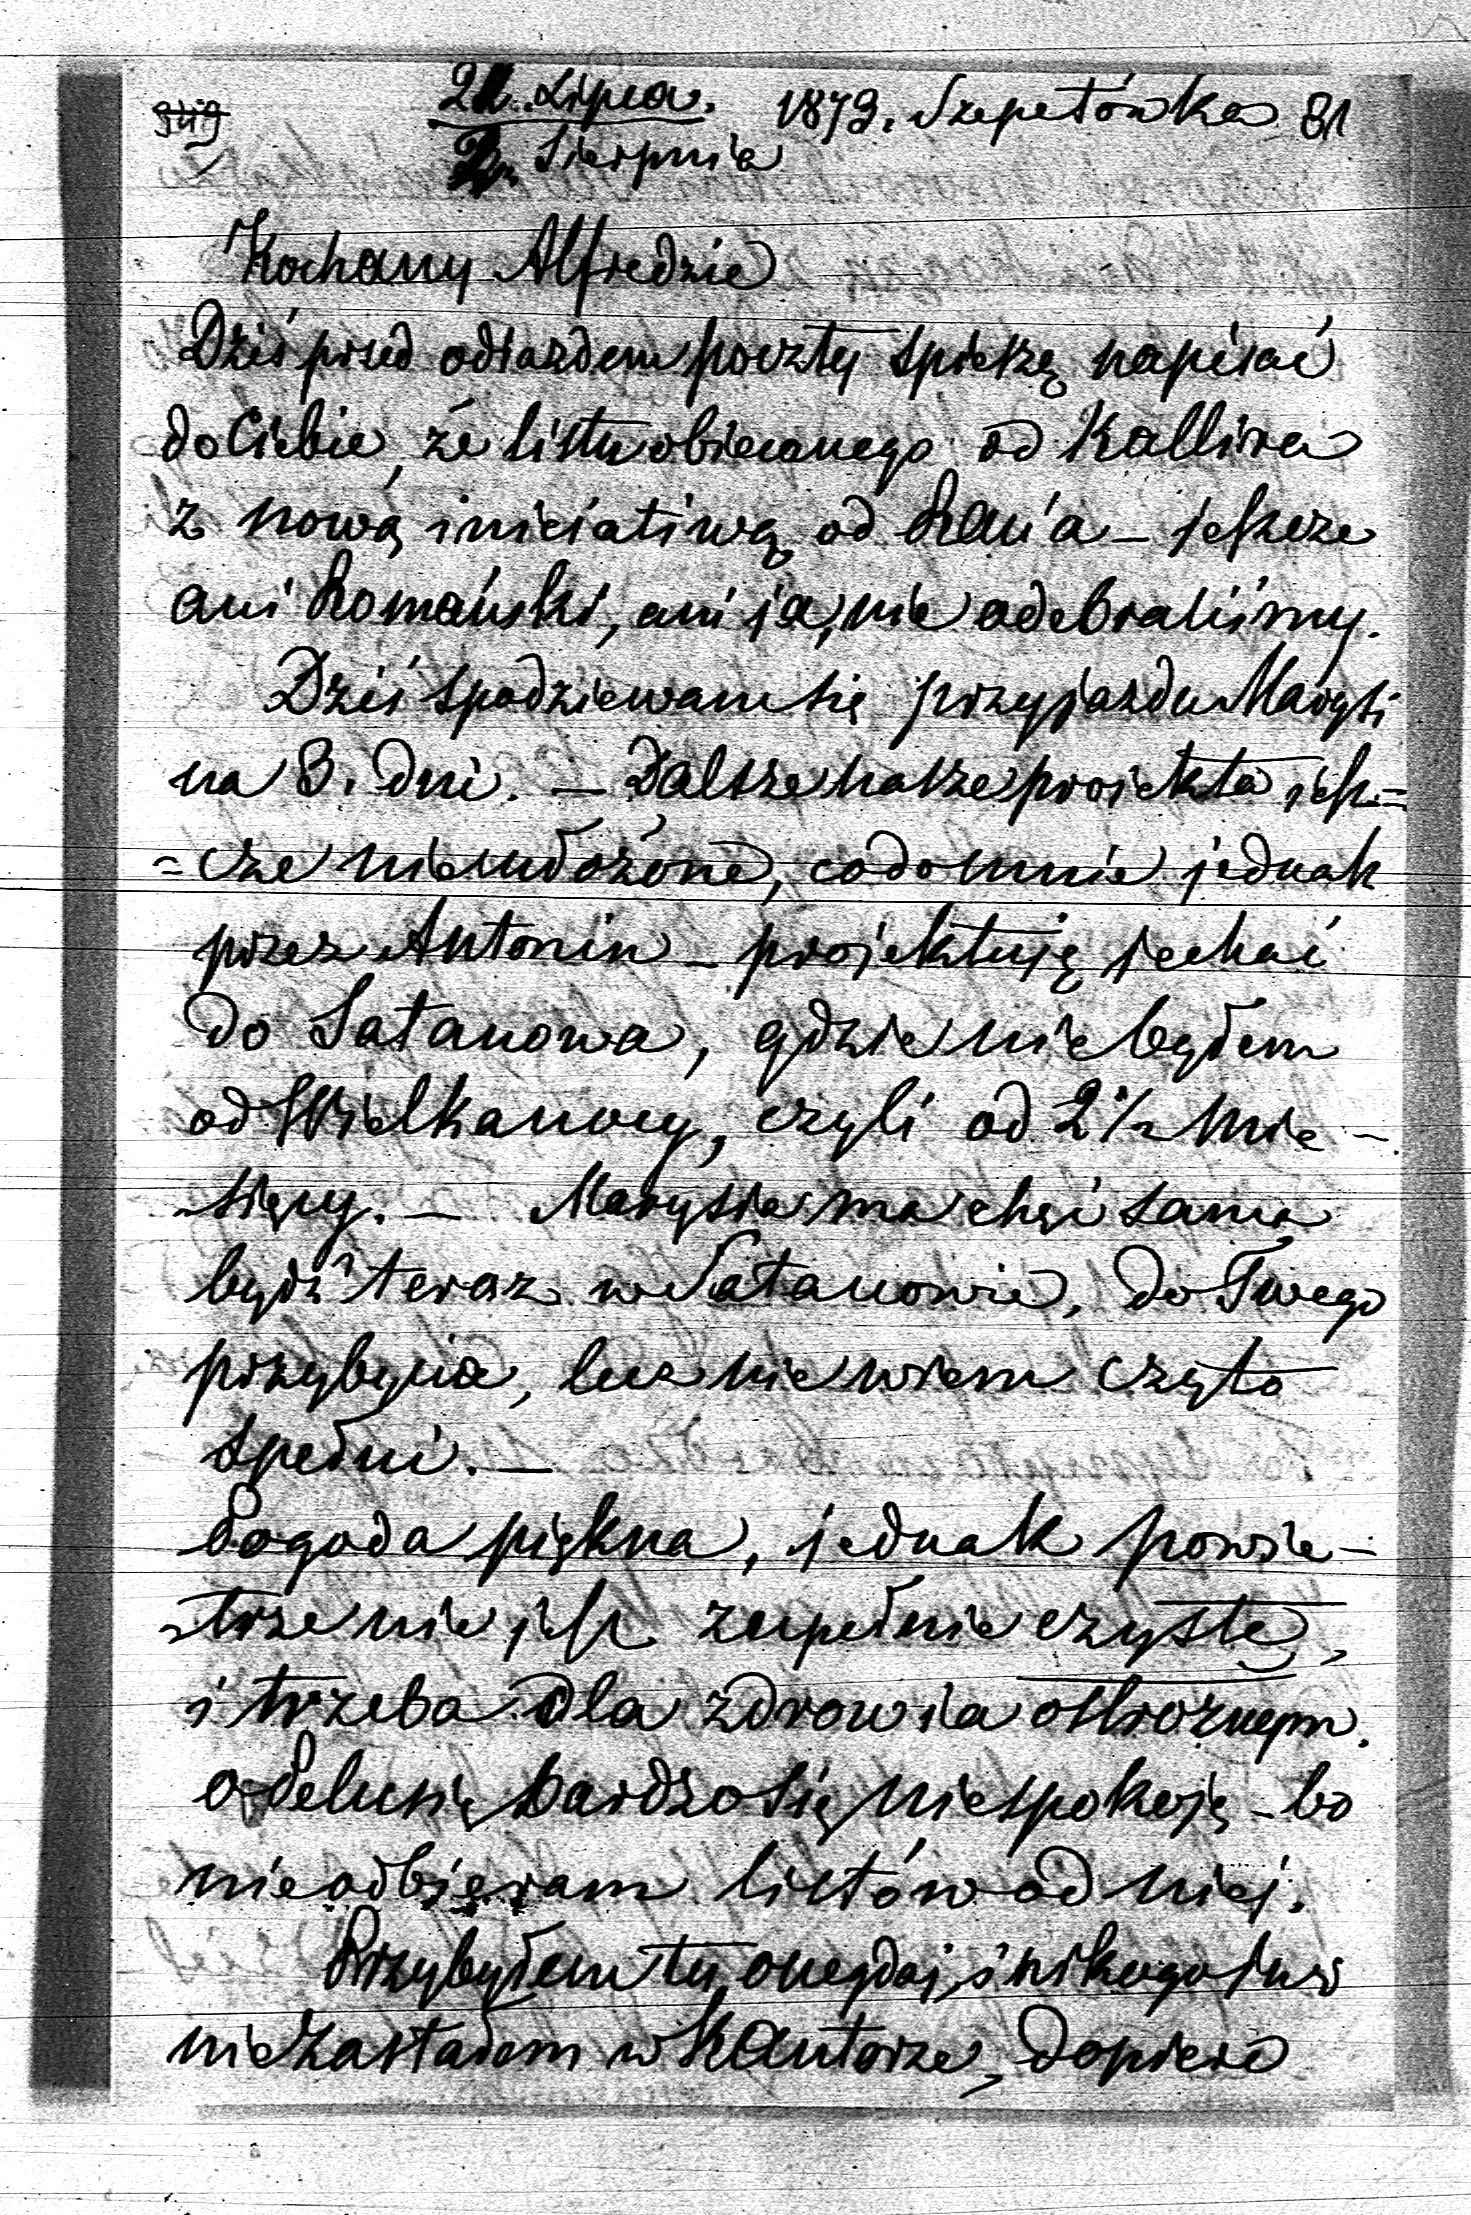 21. Lipca. 1873. Szepetówka 81
2. Sierpnia
Kochany Alfredzie
Dziś przed odjazdem poczty spieszę napisać
do Ciebie, że listu obiecanego od Kallira
z nową iniciatiwą od – jeszcze
ani Romański, ani ja, nie odebraliśmy.
Dziś spodziewam się przyjazdu Marysi
na 3. dni. – Dalsze nasze projekta jesz=
=cze nieułożone, co do mnie jednak
przez Antonin – projektuję jechać
do Satanowa, gdzie nie byłem
od Wielkanocy, czyli od 2½ mie–
sięcy. – Marysia ma chęć sama
bydź teraz w Satanowie, do Twego
przybycia, lecz nie wiem czy to
spełni. –
Pogoda piękna, jednak powie–
trze nie jest zupełnie czyste,
i trzeba dla zdrowia ostrożnym.
o Pelusię bardzo się niespokoję – bo
nie odbieram listów od niej.
Przybyłem tu onegdaj, i nikogo już
nie zastałem w Kantorze, dopiero